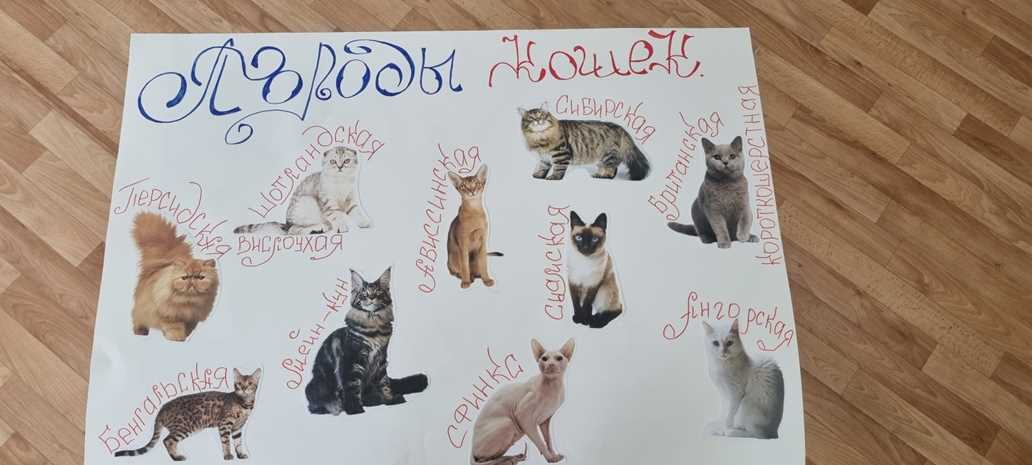 Породы кошек.
Сибирская
Шотландская
вислоухая
Персидская
Абиссинская
Британская
короткошерстная
Сиамская
Мейн-кун
Ангорская
Бенгальская
Сфинкс